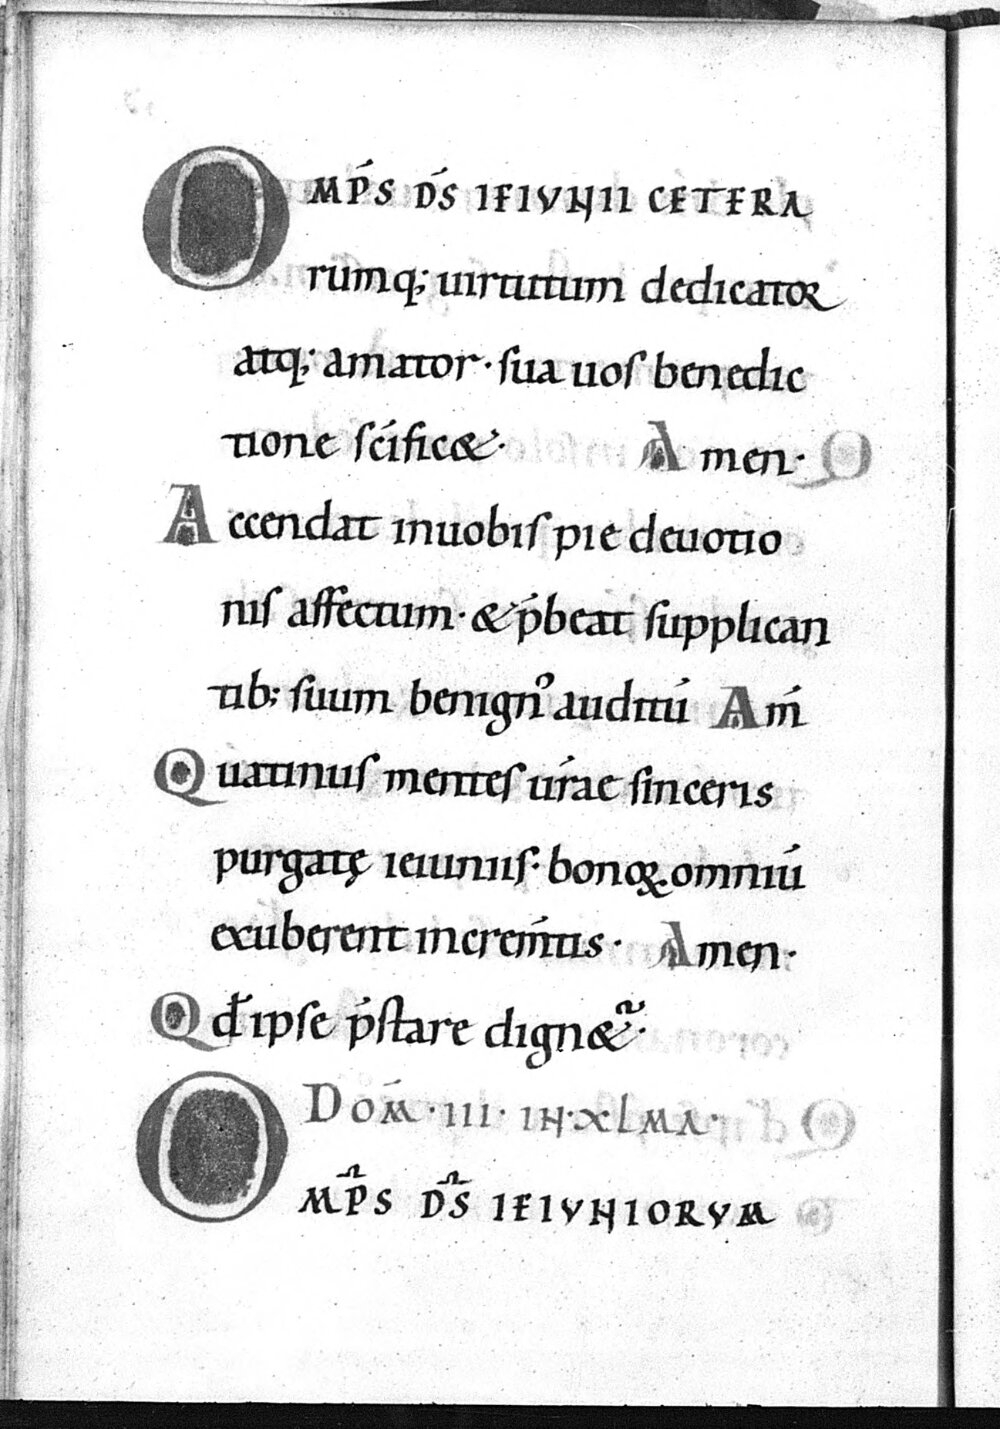 OMP̄S D̄S IEIVNII CETERA
rumq; uirtutum dedicator
atq; amator· sua uos benedic
tione sc̄ificę&· Amen·
Accendat in uobis pie deuotio
nis affectum· & p̄beat supplican
tib; suum benignꝰ auditū Am̄
Quatinus mentes ur̄ae sinceris
purgatę ieiuniis· bonoꝝ omniū
exuberent increm̄tis· Amen·
Qđ ipse p̄stare dign&ᷣ·
DOM̄· III· IN· XLMA·
OMP̄S D̄S IEIVNIORVM